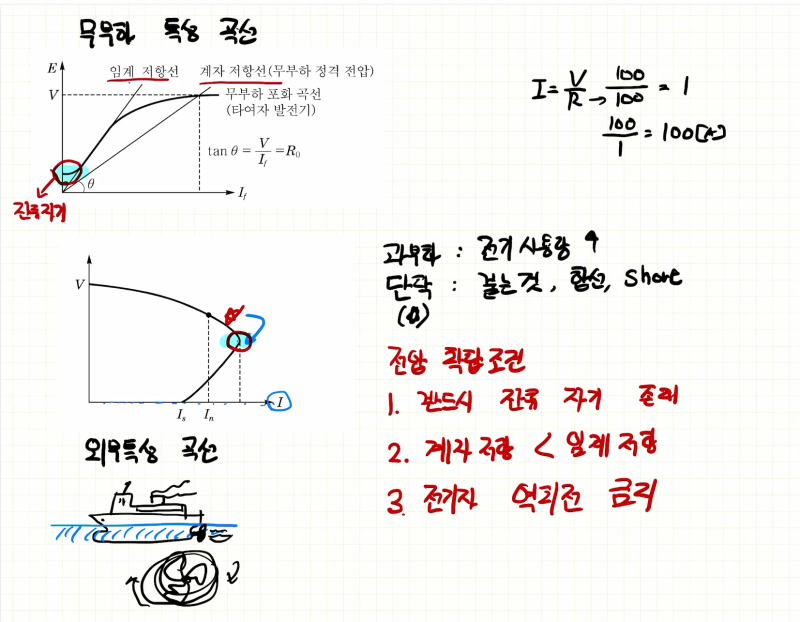 무부하 특성 곡선
E
임계 저항선
계자 저항선(무부하 정격 전압)
V
무부하 포화 곡선
(타여자 발전기)
tan θ = V/I_f = R₀
θ
I_f
잔류자기
I = V/R → 100/100 = 1
100/1 = 100[A]
V
I_s
I_n
I
외부특성 곡선
과부하 : 전기사용량 ↑
단락 : 합선, short
전압 확립조건
1. 반드시 잔류 자기 존재
2. 계자 저항 < 임계 저항
3. 전기자 역회전 금지